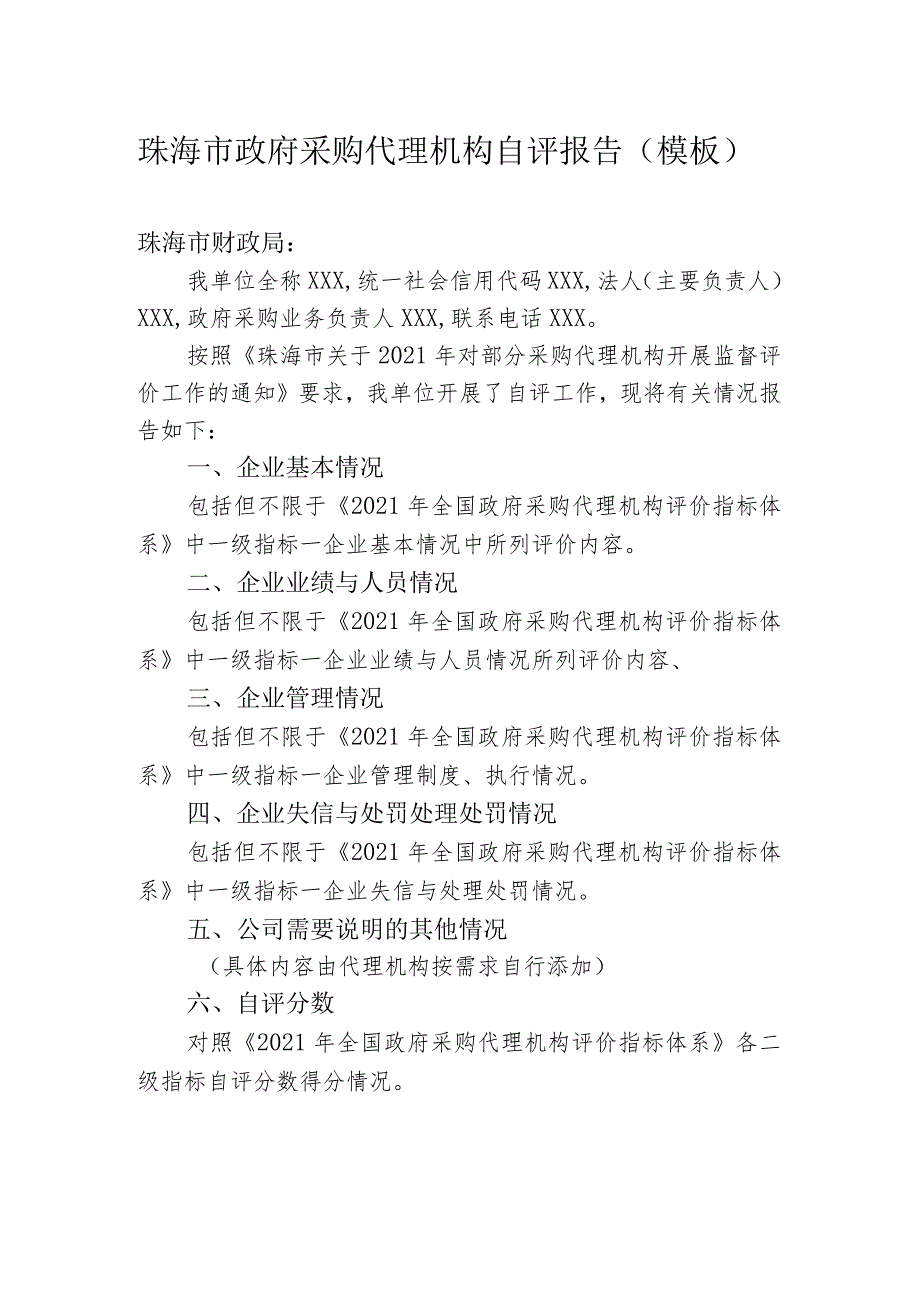 珠海市政府采购代理机构自评报告（模板）
珠海市财政局：
我单位全称 XXX,统一社会信用代码 XXX,法人（主要负责人）
XXX,政府采购业务负责人 XXX,联系电话 XXX。
按照《珠海市关于 2021 年对部分采购代理机构开展监督评
价工作的通知》要求，我单位开展了自评工作，现将有关情况报
告如下：
一、企业基本情况
包括但不限于《2021 年全国政府采购代理机构评价指标体
系》中一级指标一企业基本情况中所列评价内容。
二、企业业绩与人员情况
包括但不限于《2021 年全国政府采购代理机构评价指标体
系》中一级指标一企业业绩与人员情况所列评价内容、
三、企业管理情况
包括但不限于《2021 年全国政府采购代理机构评价指标体
系》中一级指标一企业管理制度、执行情况。
四、企业失信与处罚处理处罚情况
包括但不限于《2021 年全国政府采购代理机构评价指标体
系》中一级指标一企业失信与处理处罚情况。
五、公司需要说明的其他情况
（具体内容由代理机构按需求自行添加）
六、自评分数
对照《2021 年全国政府采购代理机构评价指标体系》各二
级指标自评分数得分情况。